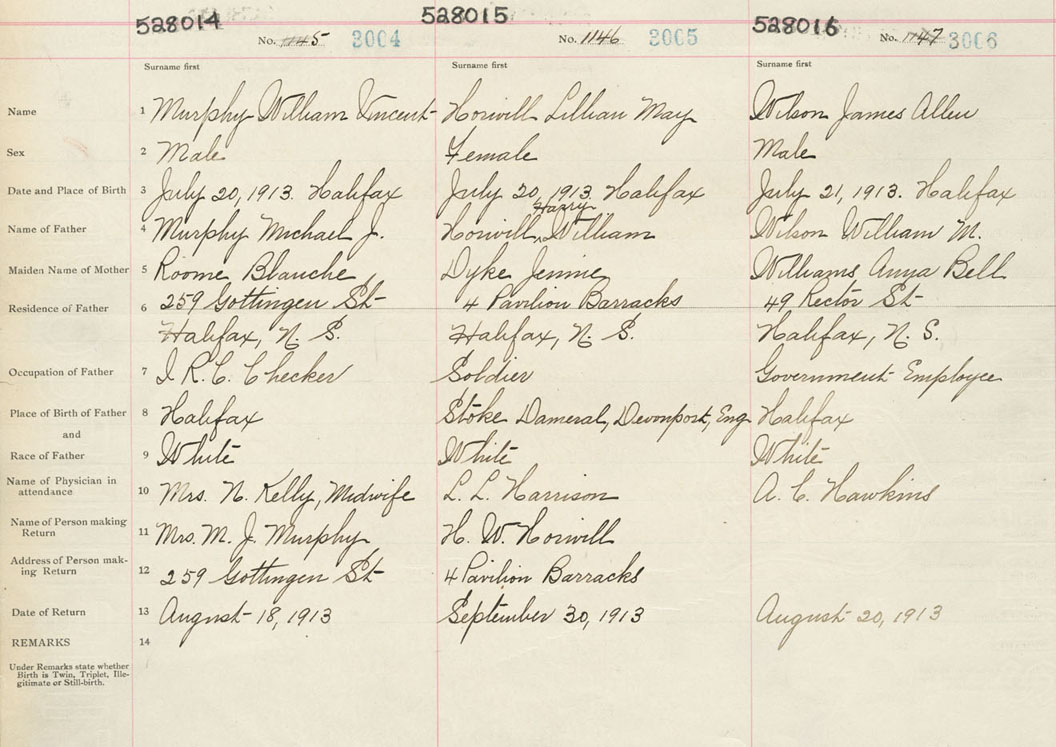 528014 528015 528016
No. 1145 3004 No. 1146 3005 No. 1147 3006
Surname first Surname first Surname first
Name 1 Murphy William Vincent Horwill Lillian May Wilson James Allen
Sex 2 Male Female Male
Date and Place of Birth 3 July 20, 1913. Halifax July 20, 1913. Halifax July 21, 1913. Halifax
Harry
Name of Father 4 Murphy Michael J. Horwill ^ William Wilson William M.
Maiden Name of Mother 5 Roome Blanche Dyke Jennie Williams Anna Bell
Residence of Father 6 259 Gottingen St 4 Pavilion Barracks 49 Rector St
Halifax, N. S. Halifax, N. S. Halifax, N. S.
Occupation of Father 7 I. R. C. Checker Soldier Government Employee
Place of Birth of Father 8 Halifax Stoke Dameral, Devonport, Eng Halifax
and
Race of Father 9 White White White
Name of Physician in
attendance 10 Mrs. N. Kelly, Midwife L. L. Harrison A. C. Hawkins
Name of Person making
Return 11 Mrs. M. J. Murphy H. W. Horwill
Address of Person mak-
ing Return 12 259 Gottingen St 4 Pavilion Barracks
Date of Return 13 August 18, 1913 September 30, 1913 August 20, 1913
REMARKS 14
Under Remarks state whether
Birth is Twin, Triplet, Ille-
gitimate or Still-birth.